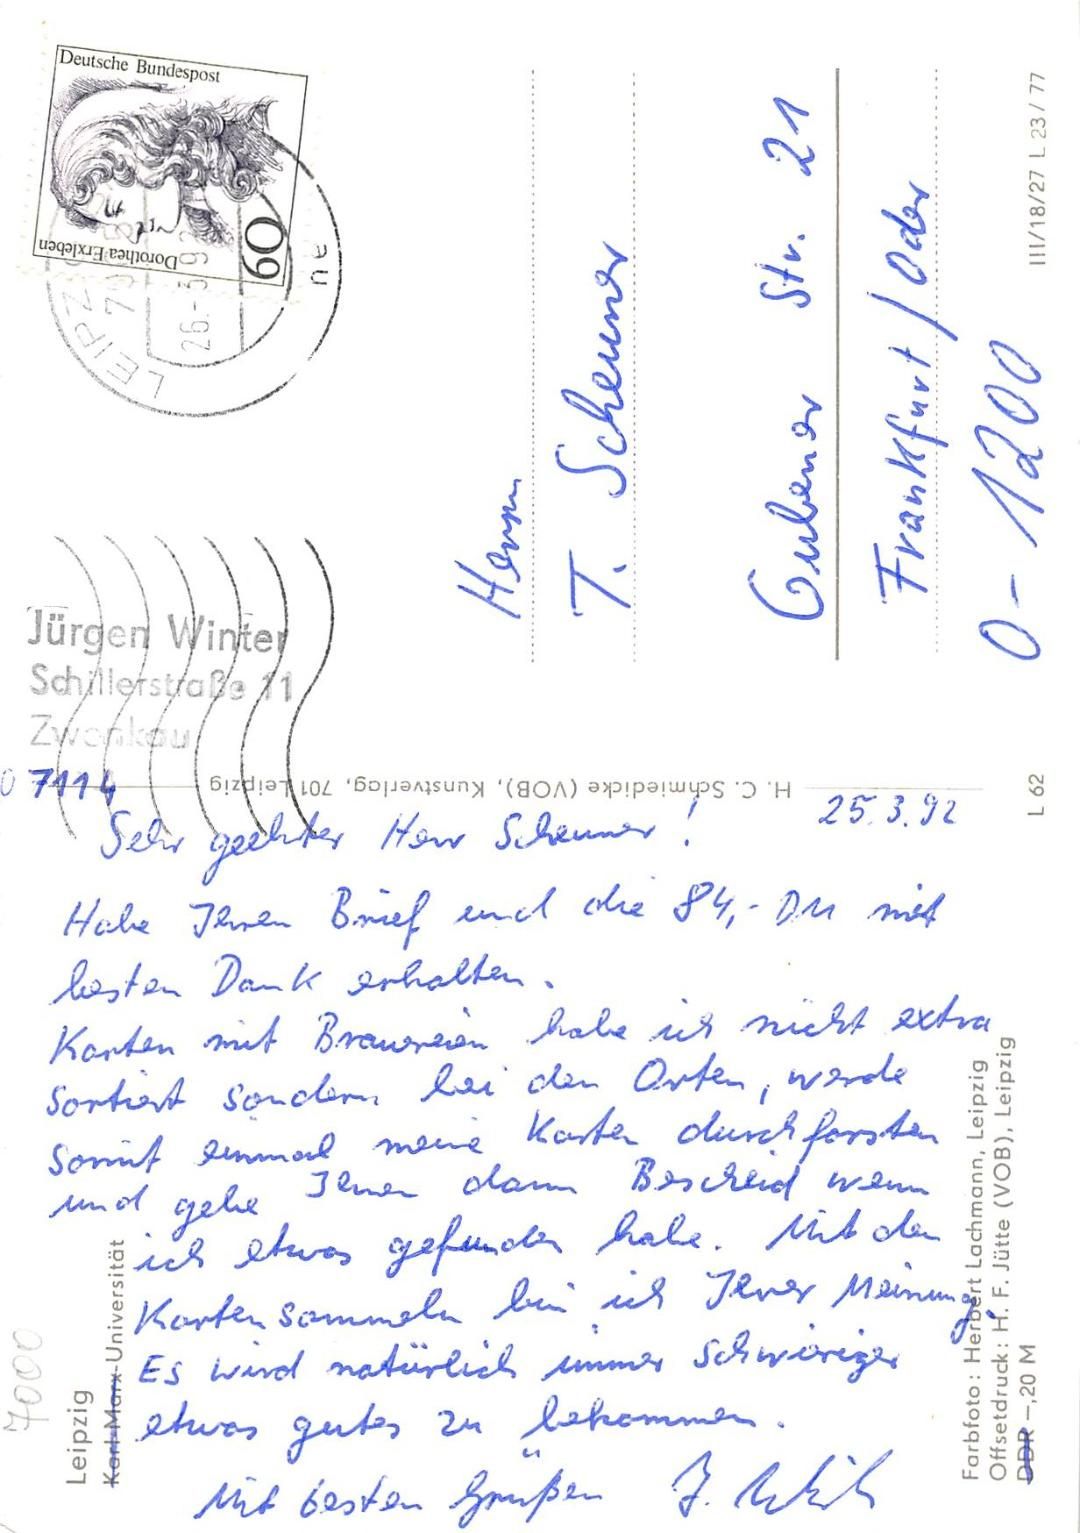 Deutsche Bundespost
Dorothea Erxleben
60
LEIPZ
26.-3.92
Jürgen Winter
Schillerstraße 11
Zwenkau
O 7114
Herrn
T. Scheuner
Gubener Str. 21
Frankfurt / Oder
O - 1200
III/18/27 L 23/77
H. C. Schmiedicke (VOB), Kunstverlag, 701 Leipzig
L 62
25.3.92
Sehr geehrter Herr Scheuner!
Habe Ihren Brief und die 84,- DM mit
besten Dank erhalten.
Karten mit Brauereien habe ich nicht extra
sortiert sondern bei den Orten, werde
somit einmal meine Karten durchforsten
und gebe Ihnen dann Bescheid wenn
ich etwas gefunden habe. Mit den
Kartensammeln bin ich Ihrer Meinung,
Es wird natürlich immer schwieriger
etwas gutes zu bekommen.
Mit besten Grüßen J. Winter
7000
Leipzig
Karl-Marx-Universität
Farbfoto: Herbert Lachmann, Leipzig
Offsetdruck: H. F. Jütte (VOB), Leipzig
DDR -,20 M